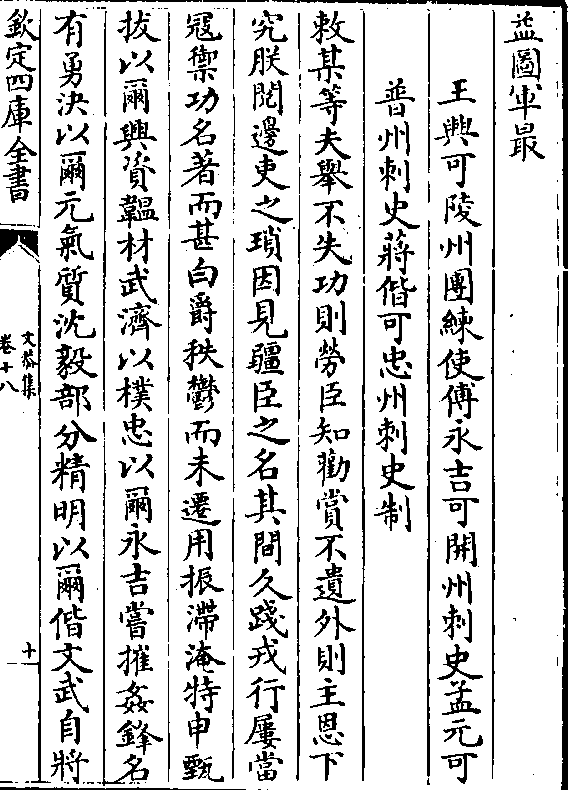 益圖軍最
王興可陵州團練使傅永吉可開州刺史孟元可
普州刺史蔣偕可忠州刺史制
敕某等夫舉不失功則勞臣知勸賞不遺外則主恩下
究朕閲邊吏之瑣因見疆臣之名其間久踐戎行屢當
冦禦功名著而甚白爵秩鬱而未遷用振滯淹特申甄
拔以爾興資韞材武濟以樸忠以爾永吉嘗摧姦鋒名
有勇決以爾元氣質沈毅部分精明以爾偕文武自將
欽定四庫全書
文恭集
卷十八
十